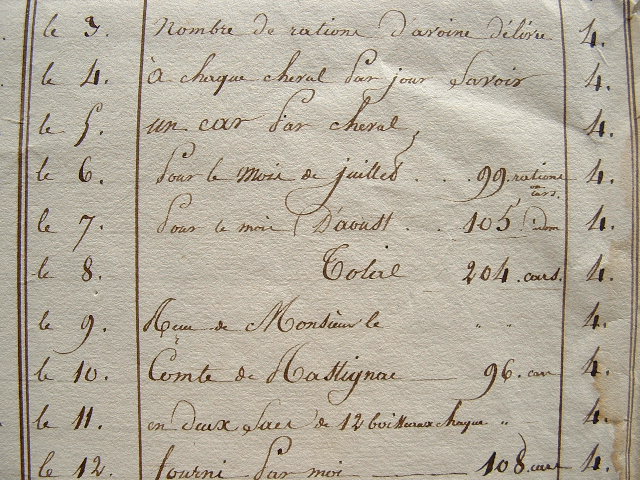 le 3. Nombre de rations d'avoine délivré 4.
le 4. à chaque cheval par jour Savoir 4.
le 5. un car par cheval, 4.
le 6. Pour le mois de juilled . . 99. rations ou cars. 4.
le 7. Pour le moi D'aoust . . 105 idom 4.
le 8. Total 204. cars. 4.
le 9. Reçu de Monsieur le " " 4.
le 10. Comte de Rastignac — 96. car 4.
le 11. en deux Sacs de 12 boisseaux chaque " 4.
le 12. fourni par moi — 108. cars 4.